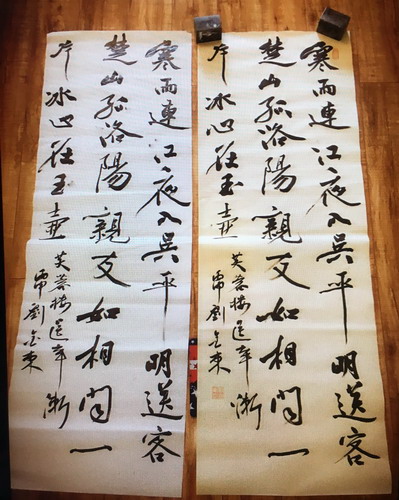 寒雨連江夜入吳平明送客
楚山孤洛陽親友如相問一
片冰心在玉壺
芙蓉樓送辛漸
劉金東
寒雨連江夜入吳平明送客
楚山孤洛陽親友如相問一
片冰心在玉壺
芙蓉樓送辛漸
劉金東